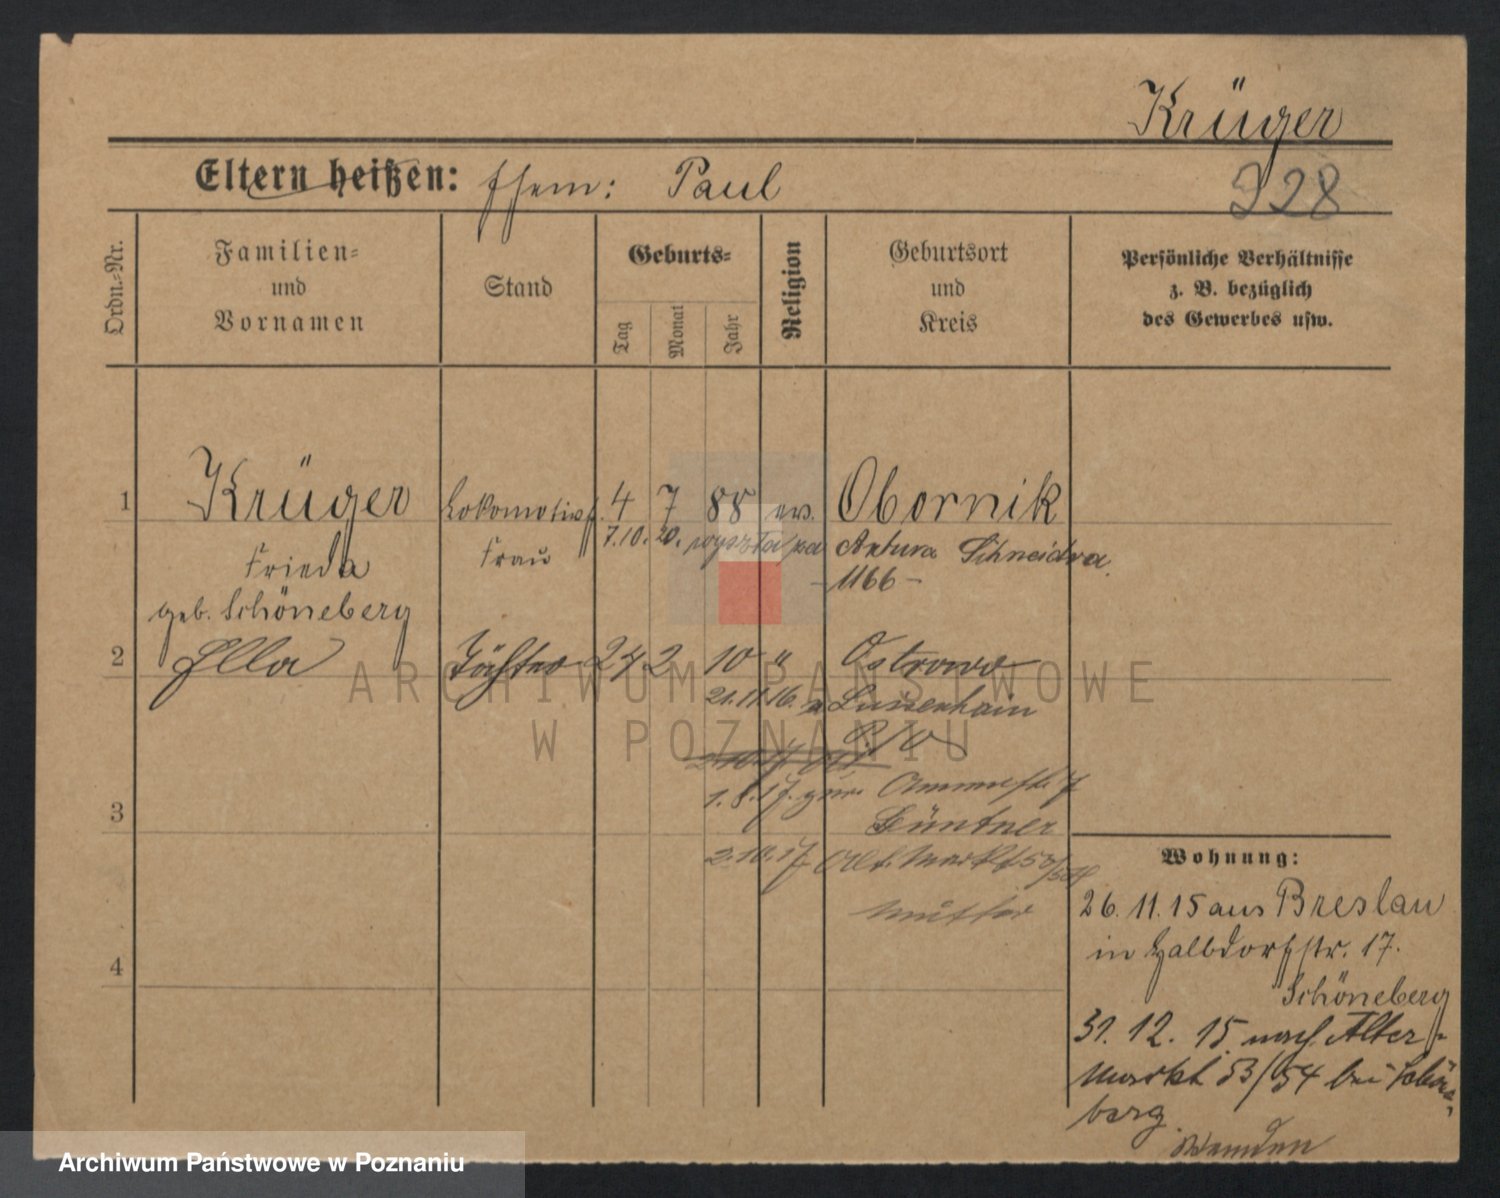 Krüger
Eltern heißen: Ehem: Paul
228
Ordn.-Nr.
Familien- und Vornamen
Stand
Geburts-
Tag
Monat
Jahr
Religion
Geburtsort und Kreis
Persönliche Verhältnisse z. B. bezüglich des Gewerbes usw.
1 Krüger Lokomotivf. 4 7 88 ev. Obornik
7.10.20. wyszła za Artura Schneidra
Frieda Frau -1166-
geb. Schöneberg
2 Ella Tochter 24 2 10 " Ostrowo
21.11.16. n Luisenhain
P/O
1.8.17. zur.
3 Büntner
2.10.17 Alt. Markt 53/54
Mutter
4
Wohnung:
26.11.15 aus Breslau
in Halbdorfstr. 17.
Schöneberg
31.12.15. nach Alter-
Markt 53/54 bei Schöne-
berg.
ARCHIWUM PAŃSTWOWE
W POZNANIU
Archiwum Państwowe w Poznaniu